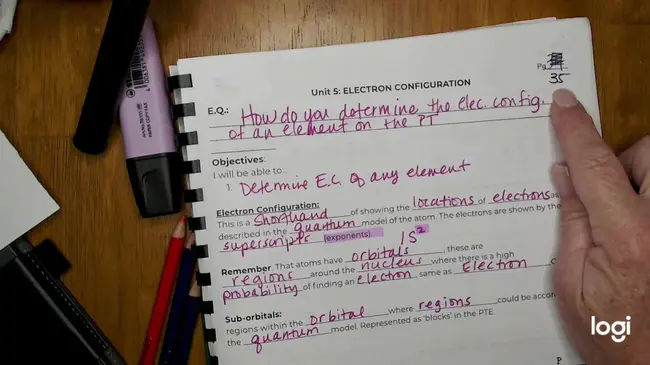 Pg.
35
Unit 5: ELECTRON CONFIGURATION
E.Q.: How do you determine the elec. config.
of an element on the PT
Objectives:
I will be able to...
1. Determine E.C. of any element
Electron Configuration:
This is a Shorthand of showing the locations of electrons as
described in the quantum model of the atom. The electrons are shown by the
superscripts (exponents). 1s²
Remember: That atoms have orbitals these are
regions around the nucleus where there is a high
probability of finding an electron same as Electron C
Sub-orbitals:
regions within the orbital where regions could be accor
the quantum model. Represented as 'blocks' in the PTE.
P
logi